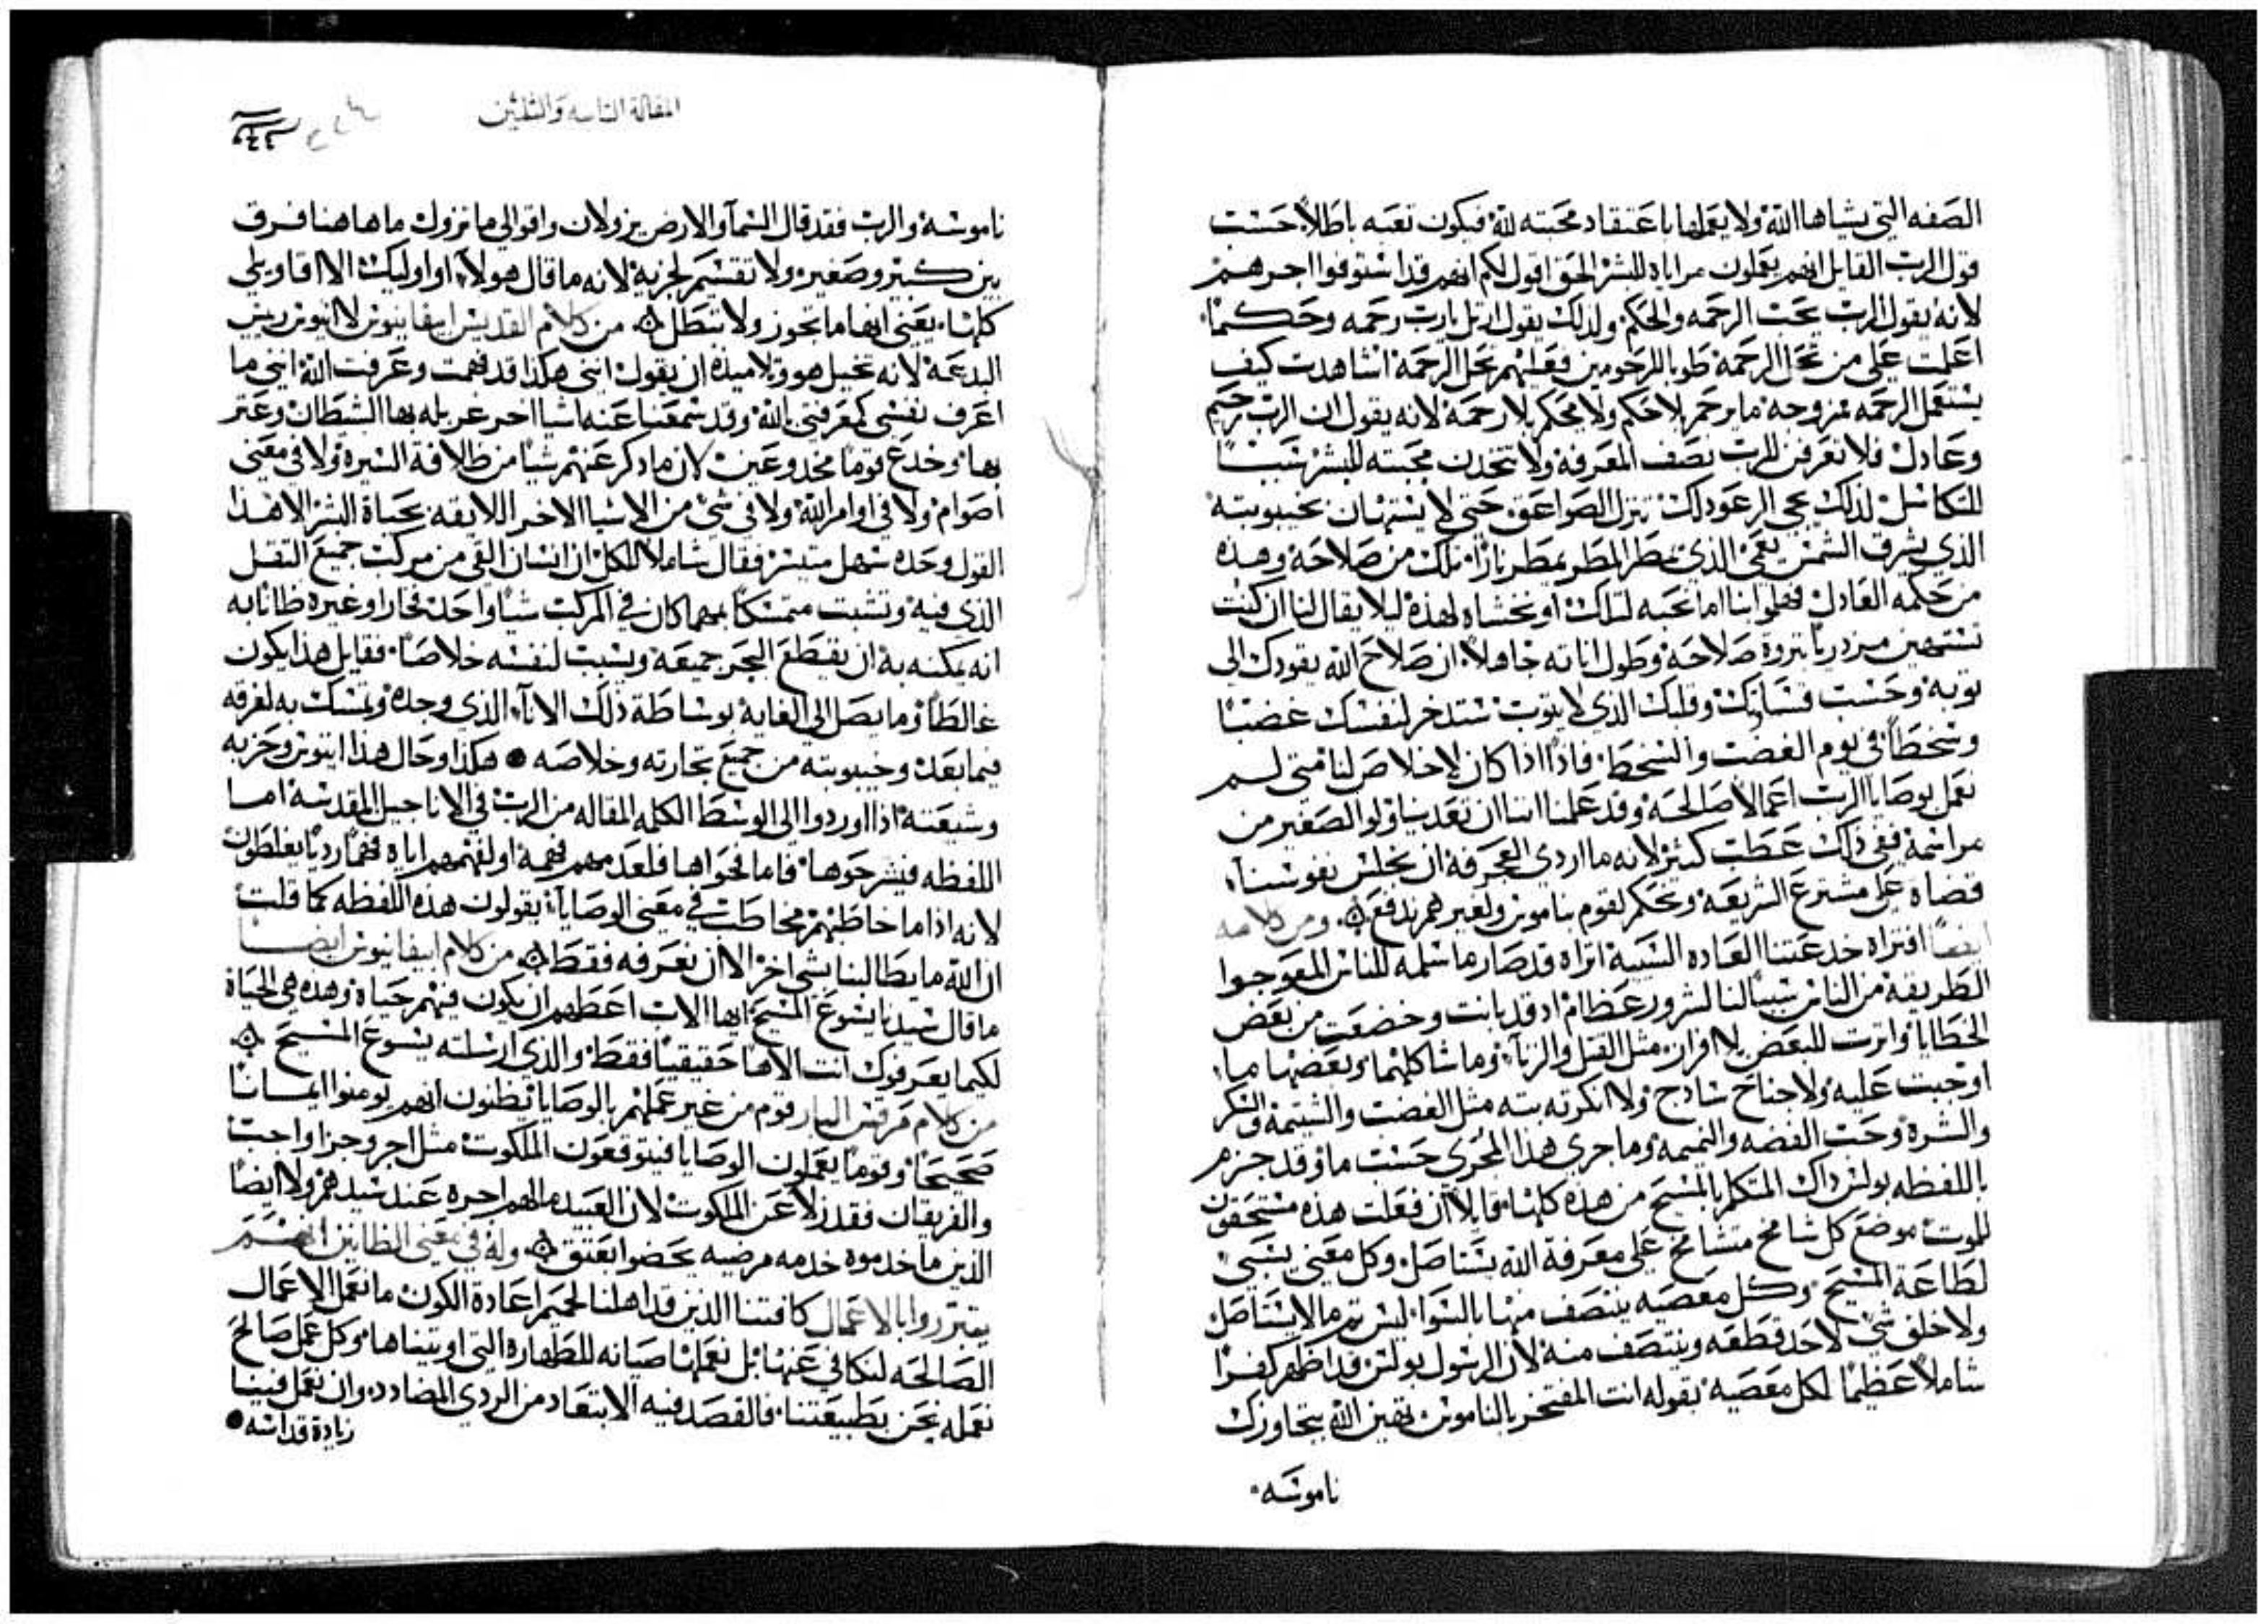 الصفه التي يشاها الله ولا يعملها باعتقاد محبته لله فيكون تعبه باطلاً حسب
قول الرب القايل انهم يعملون مراياه للبشر الحق اقول لكم انهم قد استوفوا اجرهم
لانه يقول الرب يحب الرحمه والحكم ولذلك يقول ارتل يارب رحمه وحكماً
اعلمت على من تحل الرحمة طوبا للرحومين فعليهم تحل الرحمة اشاهدت كيف
يستعمل الرحمه ممزوجه ما يرحم بلا حكم ولا يحكم بلا رحمة لانه يقول ان الرب رحيم
وعادل فلا نعرفن للرب نصف المعرفة ولا نتخدن محبته للبشر سبباً
للتكاسل لذلك تجي الرعود لذلك تنزل الصواعق حتى لا يستهان بخيبوبته
الذي يشرق الشمس يعمي الذي يمطر المطر يمطر ناراً تلك من صلاحه وهذه
من حكمه العادل فهلموا بنا اما نحبه لتلك او نخشاه لهذه ليلا يقال لنا ان كنت
تستهين مزدرياً بثروة صلاحه وطول اناته جاهلاً ان صلاح الله يقودك الى
توبه وحسب قساوتك وقلبك الذي لا يتوب ستدخر لنفسك غضباً
وسخطاً في يوم الغضب والسخط فاذاً اذا كان لا خلاص لنا متى لم
نعمل بوصايا الرب اعمالاً صالحة وقد علمنا اننا ان تعدينا ولو الصغير من
مراسمة ففي ذلك عطب كثير لانه ما اردى العجرفة ان نجلس نفوسنا
قضاه على مشترع الشريعة ونحكم لقوم بناموس ولغيرهم ندفع ومن كلامه
ايضاً افتراه خدعتنا العاده السيية اتراه قد صار ما سلمه للناس المعوجوا
الطريقة من الناس سبباً لنا لشرور عظام اد قد بانت وخضعت من بعض
الخطايا واثرت للبعض بلا افران مثل القتل والزنا وما شاكلهما وبعضها ما
اوجبت عليه ولا جناح شادج ولا انكرته بته مثل الغضب والشتيمة والسكر
والشرة وحب الفضه والنميمه وما جرى هذا المجرى حسب ما وقد جزم
باللفظه بولس ذاك المتكلم بالمسيح من هذه كلها قايلاً ان فعلت هذه مستحقون
للموت موضع كل شامخ متشامخ على معرفة الله يستاصل وكل معنى يسبى
لطاعة المسيح وكل معصيه ينتصف منها بالسوا ليس يترما لا يستاصل
ولا خلق شي لاحد قطعه وينتصف منه لان الرسول بولس قد اظهر كفراً
شاملاً عظيماً لكل معصية بقوله انت المفتخر بالناموس تهين الله بتجاوزك
ناموسه
المقالة التاسعه والثلثين
ناموسه والرب فقد قال السما والارض يزولان واقوالي ما تزول ما هاهنا فرق
بين كبير وصغير ولا تقسم لجزية لانه ما قال هولا او اوليك الا اقاويلي
كلها يعني انها ما تجوز ولا تبطل من كلام القديس ابيفانيوس لانيوس رييس
البدعة لانه تحيل هو وتلاميذه ان يقول انني هكذا قد فهمت وعرفت الله انني ما
اعرف نفسي كمعرفتي بالله وقد سمعنا عنه اشيا اخر غربله بها الشيطان وعثر
بها وخدع قوماً مخدوعين لان ما ذكر عنهم شيا من ظلافة السيرة ولا في معنى
اصوام ولا في اوامر الله ولا في شي من الاشيا الاخر اللايقه بحياة البشر الا هذا
القول وحده سهل متيسر فقال شاملا للكل ان انسان القى من مركب جميع الثقل
الذي فيه وتشبت متمسكاً بمهما كان في المركب شيا واحد فخاراً وغيره ظاناً به
انه يمكنه به ان يقطع البحر جميعه ويسبب لنفسه خلاصاً فقايل هذا يكون
غالطاً وما يصل الى الغايه بوساطة ذلك الانآ الذي وجده وتمسك به لغرقه
فيما بعد وخيبوبته من جميع تجارته وخلاصه هكذا وحال هذا ايتوس وحزبه
وشيعته اذا اوردوا الى الوسط الكلمه المقاله من الرب في الاناجيل المقدسه اما
اللفظه فيشرحوها فاما فحواها فلعدمهم فهمة او لفهمهم اياه فهماً رديا يغلطون
لانه اذا ما خاطبهم مخاطب في معنى الوصايا يقولون هذه اللفظه كما قلت
ان الله ما يطالبنا بشي اخر الا ان نعرفه فقط من كلام ابيفانيوس ايضاً
ما قال سيدنا يشوع المسيح ايها الاب اعطهم ان يكون فيهم حياة وهذه هي الحياة
لكيما يعرفوك انت الاهاً حقيقياً فقط والذي ارسلته يشوع المسيح
من كلام مرقس البار قوم من غير عملهم بالوصايا يظنون انهم يومنوا ايماناً
صحيحاً وقوماً يعملون الوصايا فيتوقعون الملكوت مثل اجر وجزا واجب
والفريقان فقد زلا عن الملكوت لان العبيد ما لهم اجره عند سيدهم ولا ايضاً
الذين ما خدموه خدمه مرضيه يحضوا بعتق وله في معنى الظانين انهم
يتبرروا بالاعمال كافتنا الذين قد اهلنا لحميم اعادة الكون ما نعمل الاعمال
الصالحه لنكافي عنها بل نعملها صيانه للطهارة التي اوتيناها وكل عمل صالح
نعمله نحن بطبيعتنا فالقصد فيه الابتعاد من الردي المضادد وان نعمل فينا
زيادة قداسه